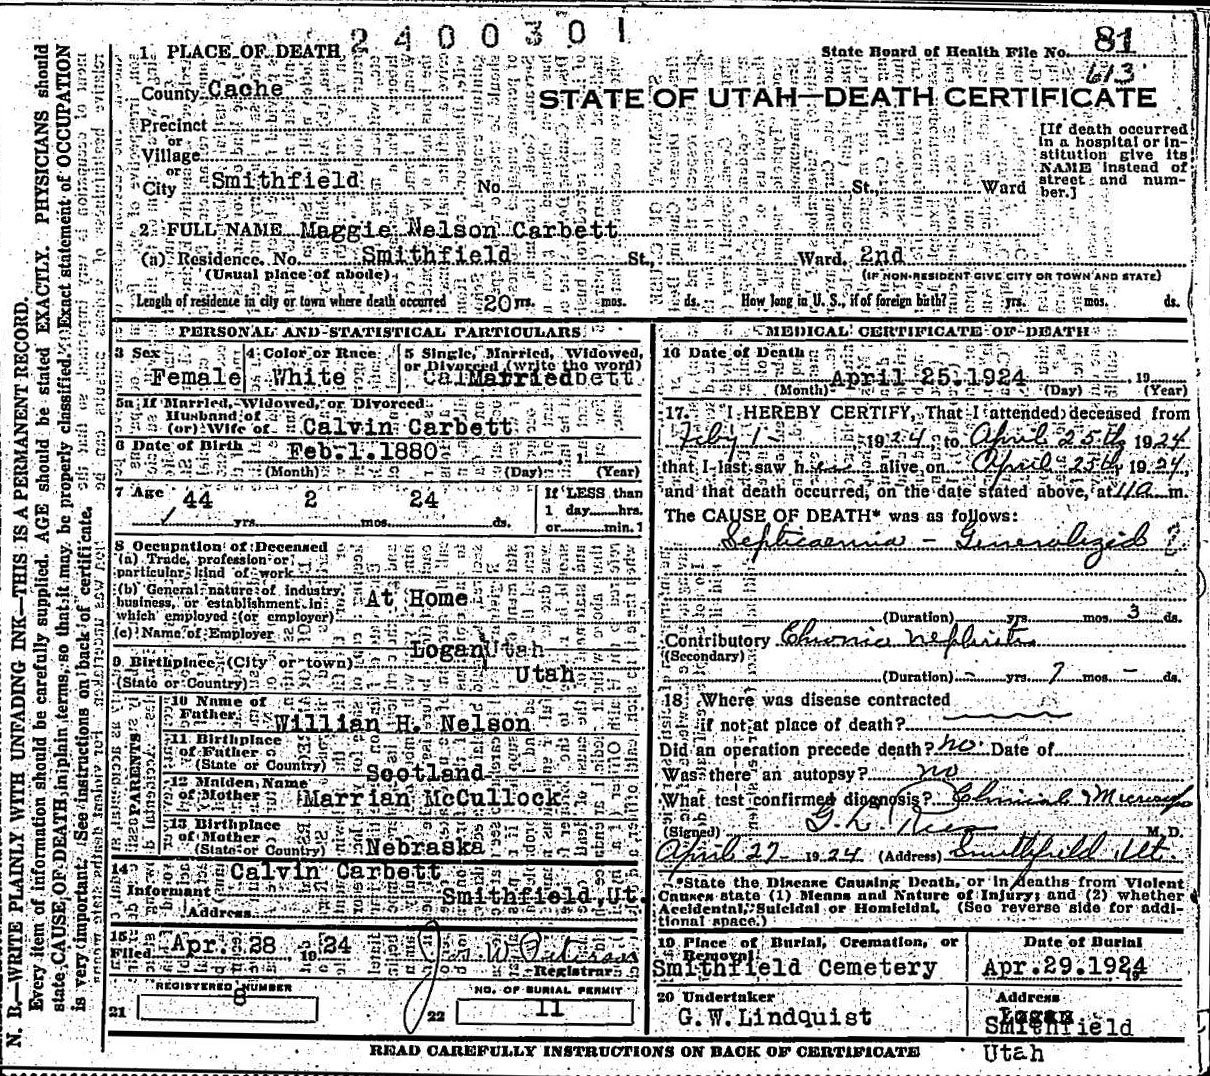 2400301
1 PLACE OF DEATH
State Board of Health File No. 81
613
County Cache
STATE OF UTAH—DEATH CERTIFICATE
Precinct
or
Village
or
City Smithfield No. St., Ward
[If death occurred
in a hospital or in-
stitution give its
NAME instead of
street and num-
ber.]
2 FULL NAME Maggie Nelson Carbett
(a) Residence. No. Smithfield St., Ward, 2nd
(Usual place of abode)
(IF NON-RESIDENT GIVE CITY OR TOWN AND STATE)
Length of residence in city or town where death occurred 20 yrs. mos. ds. How long in U. S., if of foreign birth? yrs. mos. ds.
PERSONAL AND STATISTICAL PARTICULARS
3 Sex
Female
4 Color or Race
White
5 Single, Married, Widowed,
or Divorced (write the word)
Married
5a If Married, Widowed, or Divorced
Husband of
(or) Wife of Calvin Carbett
6 Date of Birth Feb.1.1880 1
(Month) (Day) (Year)
7 Age 44 2 24
yrs. mos. ds.
If LESS than
1 day hrs.
or min.
8 Occupation of Deceased
(a) Trade, profession or
particular kind of work
(b) General nature of industry,
business, or establishment in
which employed (or employer) At Home
(c) Name of Employer
Logan Utah
9 Birthplace (City or town)
(State or Country) Utah
PARENTS
10 Name of
Father Willian H. Nelson
11 Birthplace
of Father
(State or Country) Scotland
12 Maiden Name
of Mother Marrian McCullock
13 Birthplace
of Mother
(State or Country) Nebraska
14 Calvin Carbett
Informant
Smithfield,Ut.
Address
15
Filed Apr. 28 19 24
Registrar
REGISTERED NUMBER
21 8
NO. OF BURIAL PERMIT
22 11
MEDICAL CERTIFICATE OF DEATH
16 Date of Death
April 25.1924 19
(Month) (Day) (Year)
17. I HEREBY CERTIFY, That I attended deceased from
Feby 1 1924 to April 25th 1924
that I last saw her alive on April 25th 1924,
and that death occurred, on the date stated above, at 11 a m.
The CAUSE OF DEATH* was as follows:
Septicaemia - Generalized ?
(Duration) yrs. mos. 3 ds.
Contributory Chronic nephritis
(Secondary)
(Duration) - yrs. 7 mos. - ds.
18 Where was disease contracted
if not at place of death?
Did an operation precede death? no. Date of
Was there an autopsy? no
What test confirmed diagnosis? Clinical &
(Signed) G. L. Rees M. D.
April 27 - 1924 (Address) Smithfield, Ut.
*State the Disease Causing Death, or in deaths from Violent
Causes state (1) Means and Nature of Injury; and (2) whether
Accidental, Suicidal or Homicidal. (See reverse side for addi-
tional space.)
19 Place of Burial, Cremation, or
Removal
Smithfield Cemetery
Date of Burial
Apr.29.1924
19
20 Undertaker
G.W.Lindquist
Address
Logan
Smithfield
Utah
READ CAREFULLY INSTRUCTIONS ON BACK OF CERTIFICATE
N. B.—WRITE PLAINLY WITH UNFADING INK—THIS IS A PERMANENT RECORD.
Every item of information should be carefully supplied. AGE should be stated EXACTLY. PHYSICIANS should
state CAUSE OF DEATH in plain terms, so that it may be properly classified. Exact statement of OCCUPATION
is very important. See instructions on back of certificate.